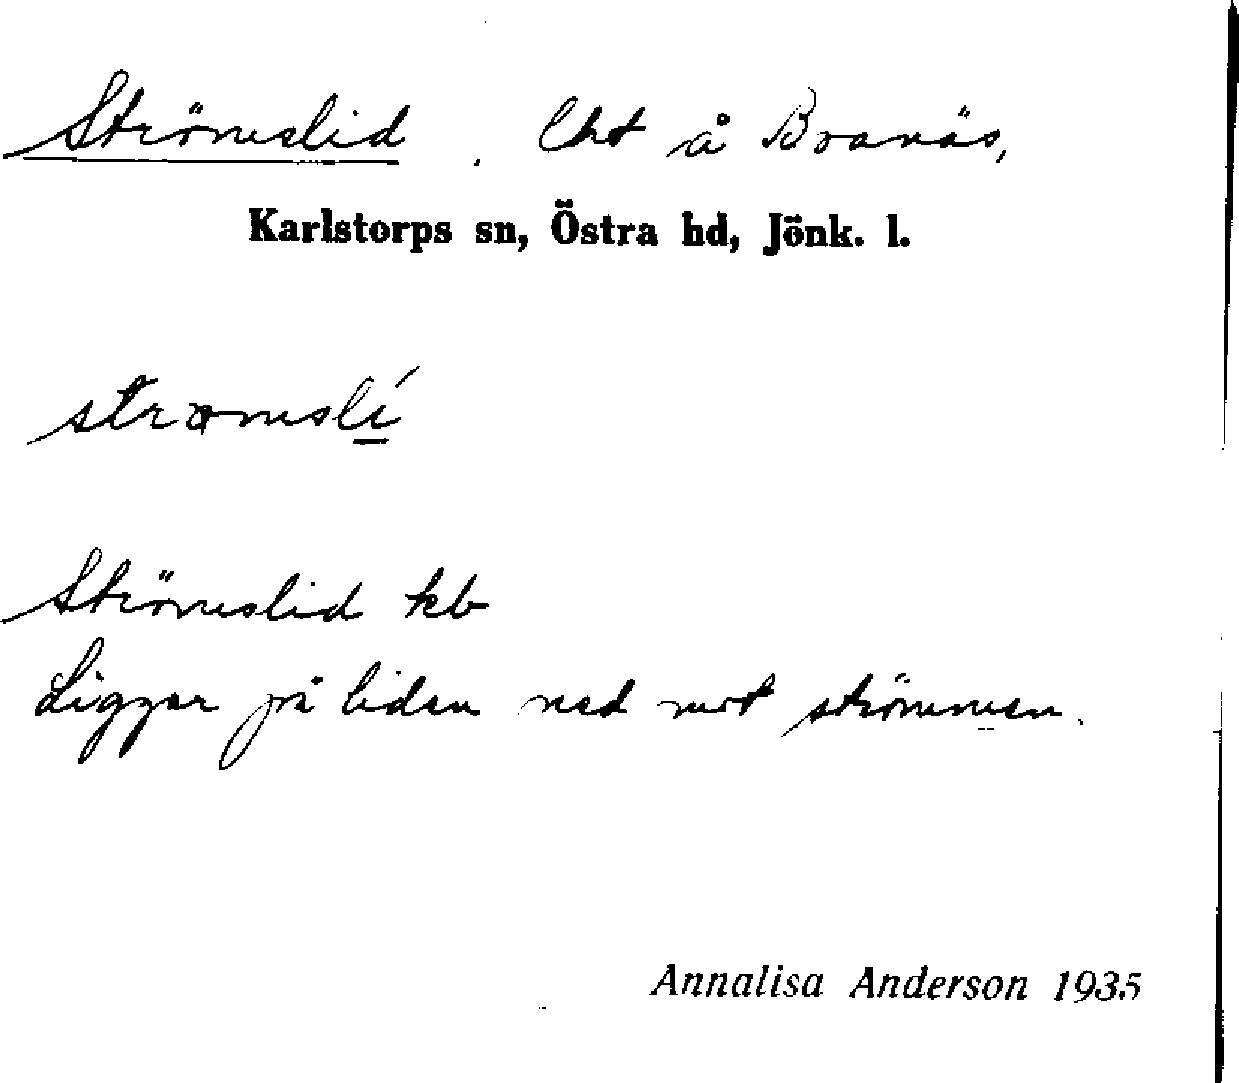 Strömslid. Lht å Branäs,
Karlstorps sn, Östra hd, Jönk. l.
strömslí
Strömslid kb
Ligger på liden ned mot strömmen.
Annalisa Anderson 1935